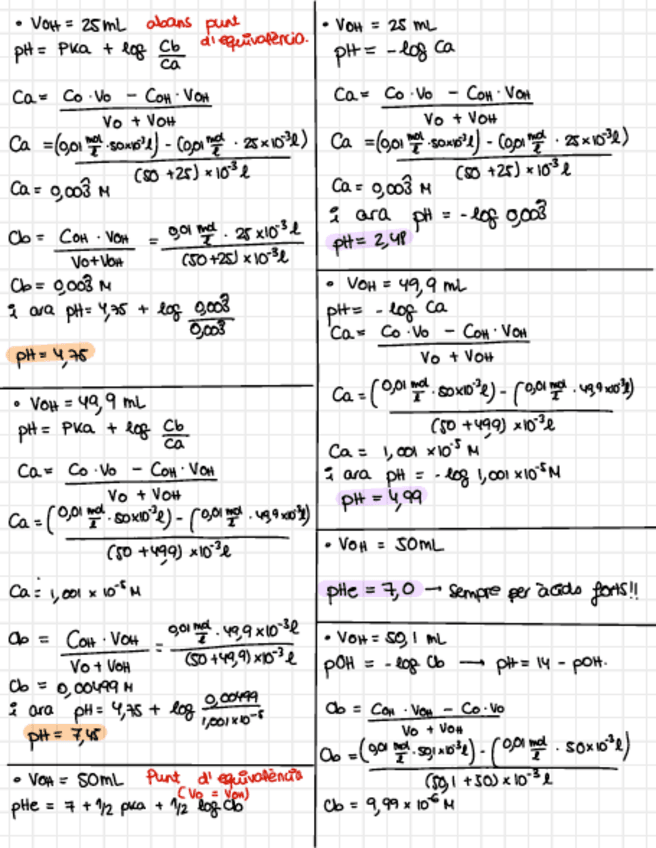 • VOH = 25 mL abans punt d'equivalència.
pH = PKa + log Cb/Ca
Ca = Co · Vo - COH · VOH / Vo + VOH
Ca = (0,01 mol/l · 50x10⁻³l) - (0,01 mol/l · 25 x 10⁻³l) / (50 + 25) x 10⁻³ l
Ca = 0,003̂ M
Cb = COH · VOH / Vo + VOH = 0,01 mol/l · 25 x 10⁻³ l / (50 + 25) x 10⁻³ l
Cb = 0,003̂ M
i ara pH = 4,75 + log 0,003̂/0,003̂
pH = 4,75
• VOH = 49,9 mL
pH = PKa + log Cb/Ca
Ca = Co · Vo - COH · VOH / Vo + VOH
Ca = (0,01 mol/l · 50x10⁻³l) - (0,01 mol/l · 49,9 x10⁻³l) / (50 + 49,9) x 10⁻³ l
Ca = 1,001 x 10⁻⁵ M
Cb = COH · VOH / Vo + VOH = 0,01 mol/l · 49,9 x 10⁻³ l / (50 + 49,9) x 10⁻³ l
Cb = 0,00499 M
i ara pH = 4,75 + log 0,00499/1,001x10⁻⁵
pH = 7,45
• VOH = 50mL Punt d'equivalència
(Vo = VOH)
pHe = 7 + 1/2 pka + 1/2 log Cb
• VOH = 25 mL
pH = - log Ca
Ca = Co · Vo - COH · VOH / Vo + VOH
Ca = (0,01 mol/l · 50x10⁻³l) - (0,01 mol/l · 25 x 10⁻³l) / (50 + 25) x 10⁻³ l
Ca = 0,003̂ M
i ara pH = - log 0,003̂
pH = 2,48
• VOH = 49,9 mL
pH = - log Ca
Ca = Co · Vo - COH · VOH / Vo + VOH
Ca = (0,01 mol/l · 50x10⁻³l) - (0,01 mol/l · 49,9 x10⁻³l) / (50 + 49,9) x 10⁻³ l
Ca = 1,001 x 10⁻⁵ M
i ara pH = - log 1,001 x 10⁻⁵ M
pH = 4,99
• VOH = 50mL
pHe = 7,0 → Sempre per àcids forts!!
• VOH = 50,1 mL
pOH = - log Cb → pH = 14 - pOH.
Cb = COH · VOH - Co · Vo / Vo + VOH
Cb = (0,01 mol/l · 50,1 x10⁻³l) - (0,01 mol/l · 50x10⁻³ l) / (50,1 + 50) x 10⁻³ l
Cb = 9,99 x 10⁻⁶ M